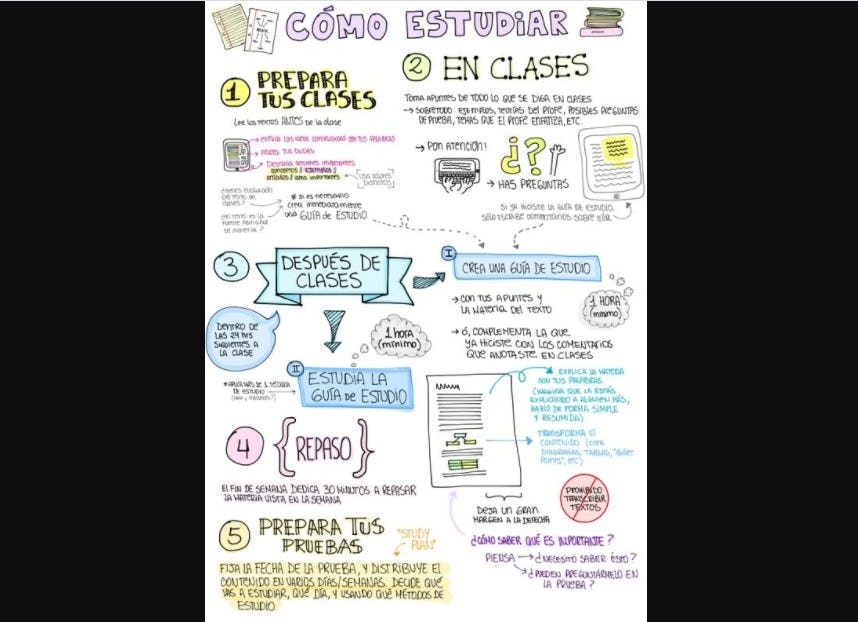 CÓMO ESTUDIAR
1 PREPARA
TUS CLASES
Lee los textos ANTES de la clase
→ EXPLICA LAS IDEAS COMPLICADAS CON TUS PALABRAS
→ ANOTA TUS DUDAS
→ DESTACA SECCIONES IMPORTANTES
CONCEPTOS // EJEMPLOS //
ARTÍCULOS // IDEAS IMPORTANTES
USA COLORES
DIFERENTES
¿TIENES EVALUACIÓN
DEL TEXTO EN
CLASES?
¿EL TEXTO ES LA
FUENTE PRINCIPAL
DE MATERIA?
* SI ES NECESARIO
CREA INMEDIATAMENTE
UNA GUÍA DE ESTUDIO
2 EN CLASES
TOMA APUNTES DE TODO LO QUE SE DIGA EN CLASES
→ SOBRETODO: EJEMPLOS, TEORÍAS DEL PROFE, POSIBLES PREGUNTAS
DE PRUEBA, TEMAS QUE EL PROFE ENFATIZA, ETC.
→ PON ATENCIÓN!
¿?
→ HAZ PREGUNTAS
SI YA HICISTE LA GUÍA DE ESTUDIO,
SÓLO ESCRIBE COMENTARIOS SOBRE ELLA
3 DESPUÉS DE
CLASES
DENTRO DE
LAS 24 hrs
SIGUIENTES A
LA CLASE
I CREA UNA GUÍA DE ESTUDIO
→ CON TUS APUNTES Y
LA MATERIA DEL TEXTO
→ Ó, COMPLEMENTA LA QUE
YA HICISTE CON LOS COMENTARIOS
QUE ANOTASTE EN CLASES
1 HORA
(mínimo)
1 hora
(mínimo)
II ESTUDIA LA
GUÍA DE ESTUDIO
* APLICA MÁS DE 1 TÉCNICA
DE ESTUDIO
EXPLICA LA MATERIA
CON TUS PALABRAS.
(IMAGINA QUE LA ESTÁS
EXPLICANDO A ALGUIEN MÁS,
HAZLO DE FORMA SIMPLE
Y RESUMIDA)
TRANSFORMA EL
CONTENIDO (CREA
DIAGRAMAS, TABLAS, "BULLET
POINTS", ETC)
DEJA UN GRAN
MARGEN A LA DERECHA
PROHIBIDO
TRANSCRIBIR
TEXTOS
¿CÓMO SABER QUÉ ES IMPORTANTE?
PIENSA → ¿NECESITO SABER ÉSTO?
→ ¿PUEDEN PREGUNTÁRMELO EN
LA PRUEBA?
4 {REPASO}
EL FIN DE SEMANA DEDICA 30 MINUTOS A REPASAR
LA MATERIA VISTA EN LA SEMANA
5 PREPARA TUS
PRUEBAS
"STUDY
PLAN"
FIJA LA FECHA DE LA PRUEBA, Y DISTRIBUYE EL
CONTENIDO EN VARIOS DÍAS/SEMANAS. DECIDE QUÉ
VAS A ESTUDIAR, QUÉ DÍA, Y USANDO QUÉ MÉTODOS DE
ESTUDIO.